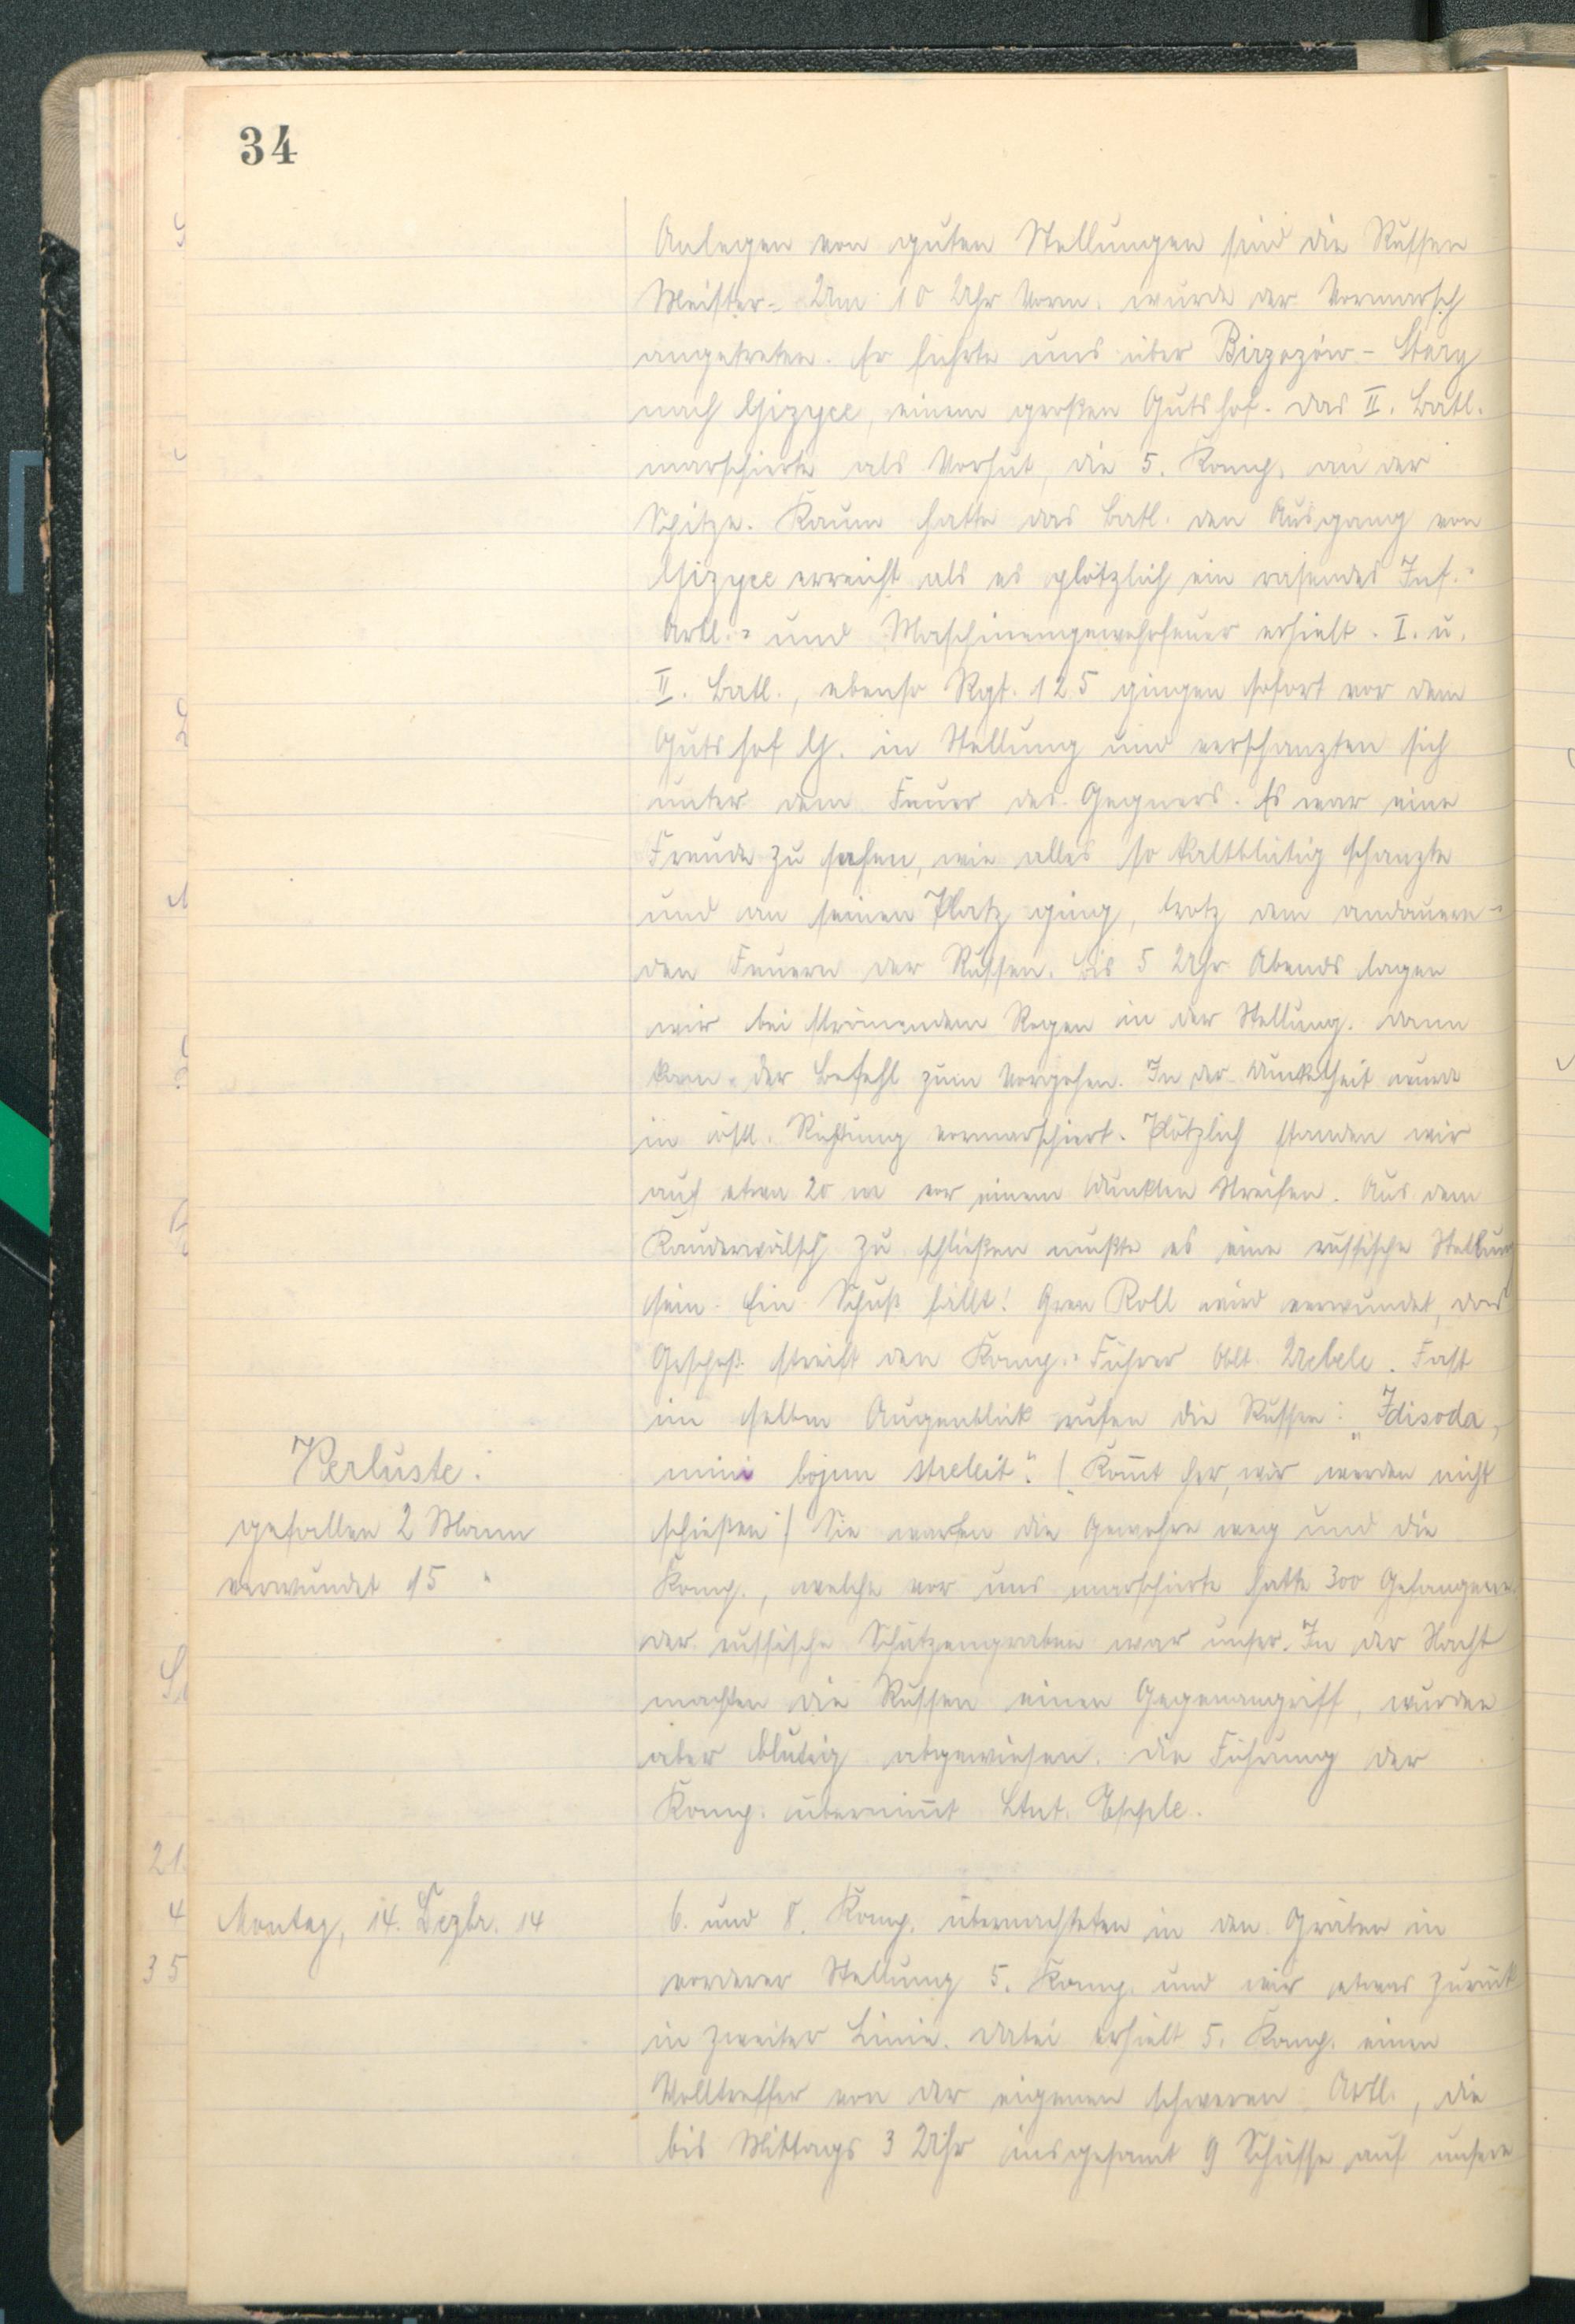 34
Anlegen von guten Stellungen sind die Russen
Meister. Um 10 Uhr Vorm. wurde der Vormarsch
angetreten. Er führte uns über Birzozów-Stary
nach Gizyce, einem großen Gutshof. Das II. Batl.
marschierte als Vorhut, die 5. Komp. an der
Spitze. Kaum hatte das Batl. den Ausgang von
Gizyce erreicht als es plötzlich ein rasendes Inf.-
Artl.- und Maschinengewehrfeuer erhielt. I. u.
II. Batl., ebenso Rgt. 125 gingen sofort vor dem
Gutshof G. in Stellung und verschanzten sich
unter dem Feuer des Gegners. Es war eine
Freude zu sehen, wie alles so kaltblütig schanzte
und an seinen Platz ging, trotz dem andauern-
den Feuern der Russen. Bis 5 Uhr Abends lagen
wir bei strömendem Regen in der Stellung. Dann
kam der Befehl zum Vorgehen. In der Dunkelheit wurde
in östl. Richtung vormarschiert. Plötzlich standen wir
auf etwa 20 m vor einem dunklen Streifen. Aus dem
Kauderwälsch zu schließen mußte es eine russische Stellung
sein. Ein Schuß fällt! Gren Roll wird verwundet, das
Geschoß streift den Komp.-Führer Oblt. Uebele. Fast
im selben Augenblick rufen die Russen: „Idisoda,
mini bojem streleit". („Komt her, wir werden nicht
schießen") Sie warfen die Gewehre weg und die
Komp., welche vor uns marschierte hatte 300 Gefangene.
Der russische Schützengraben war unser. In der Nacht
machten die Russen einen Gegenangriff, wurden
aber blutig abgewiesen. Die Führung der
Komp. übernimt Ltnt. Epple.
Verluste:
gefallen 2 Mann
verwundet 15 "
Montag, 14. Dezbr. 14
6. und 8. Komp. übernachteten in den Gräben in
vorderer Stellung 5. Komp. und wir etwas zurück
in zweiter Linie. Dabei erhielt 5. Komp. einen
Volltreffer von der eigenen schweren Artl., die
bis Mittags 3 Uhr insgesamt 9 Schüsse auf unsere
21.
4
35